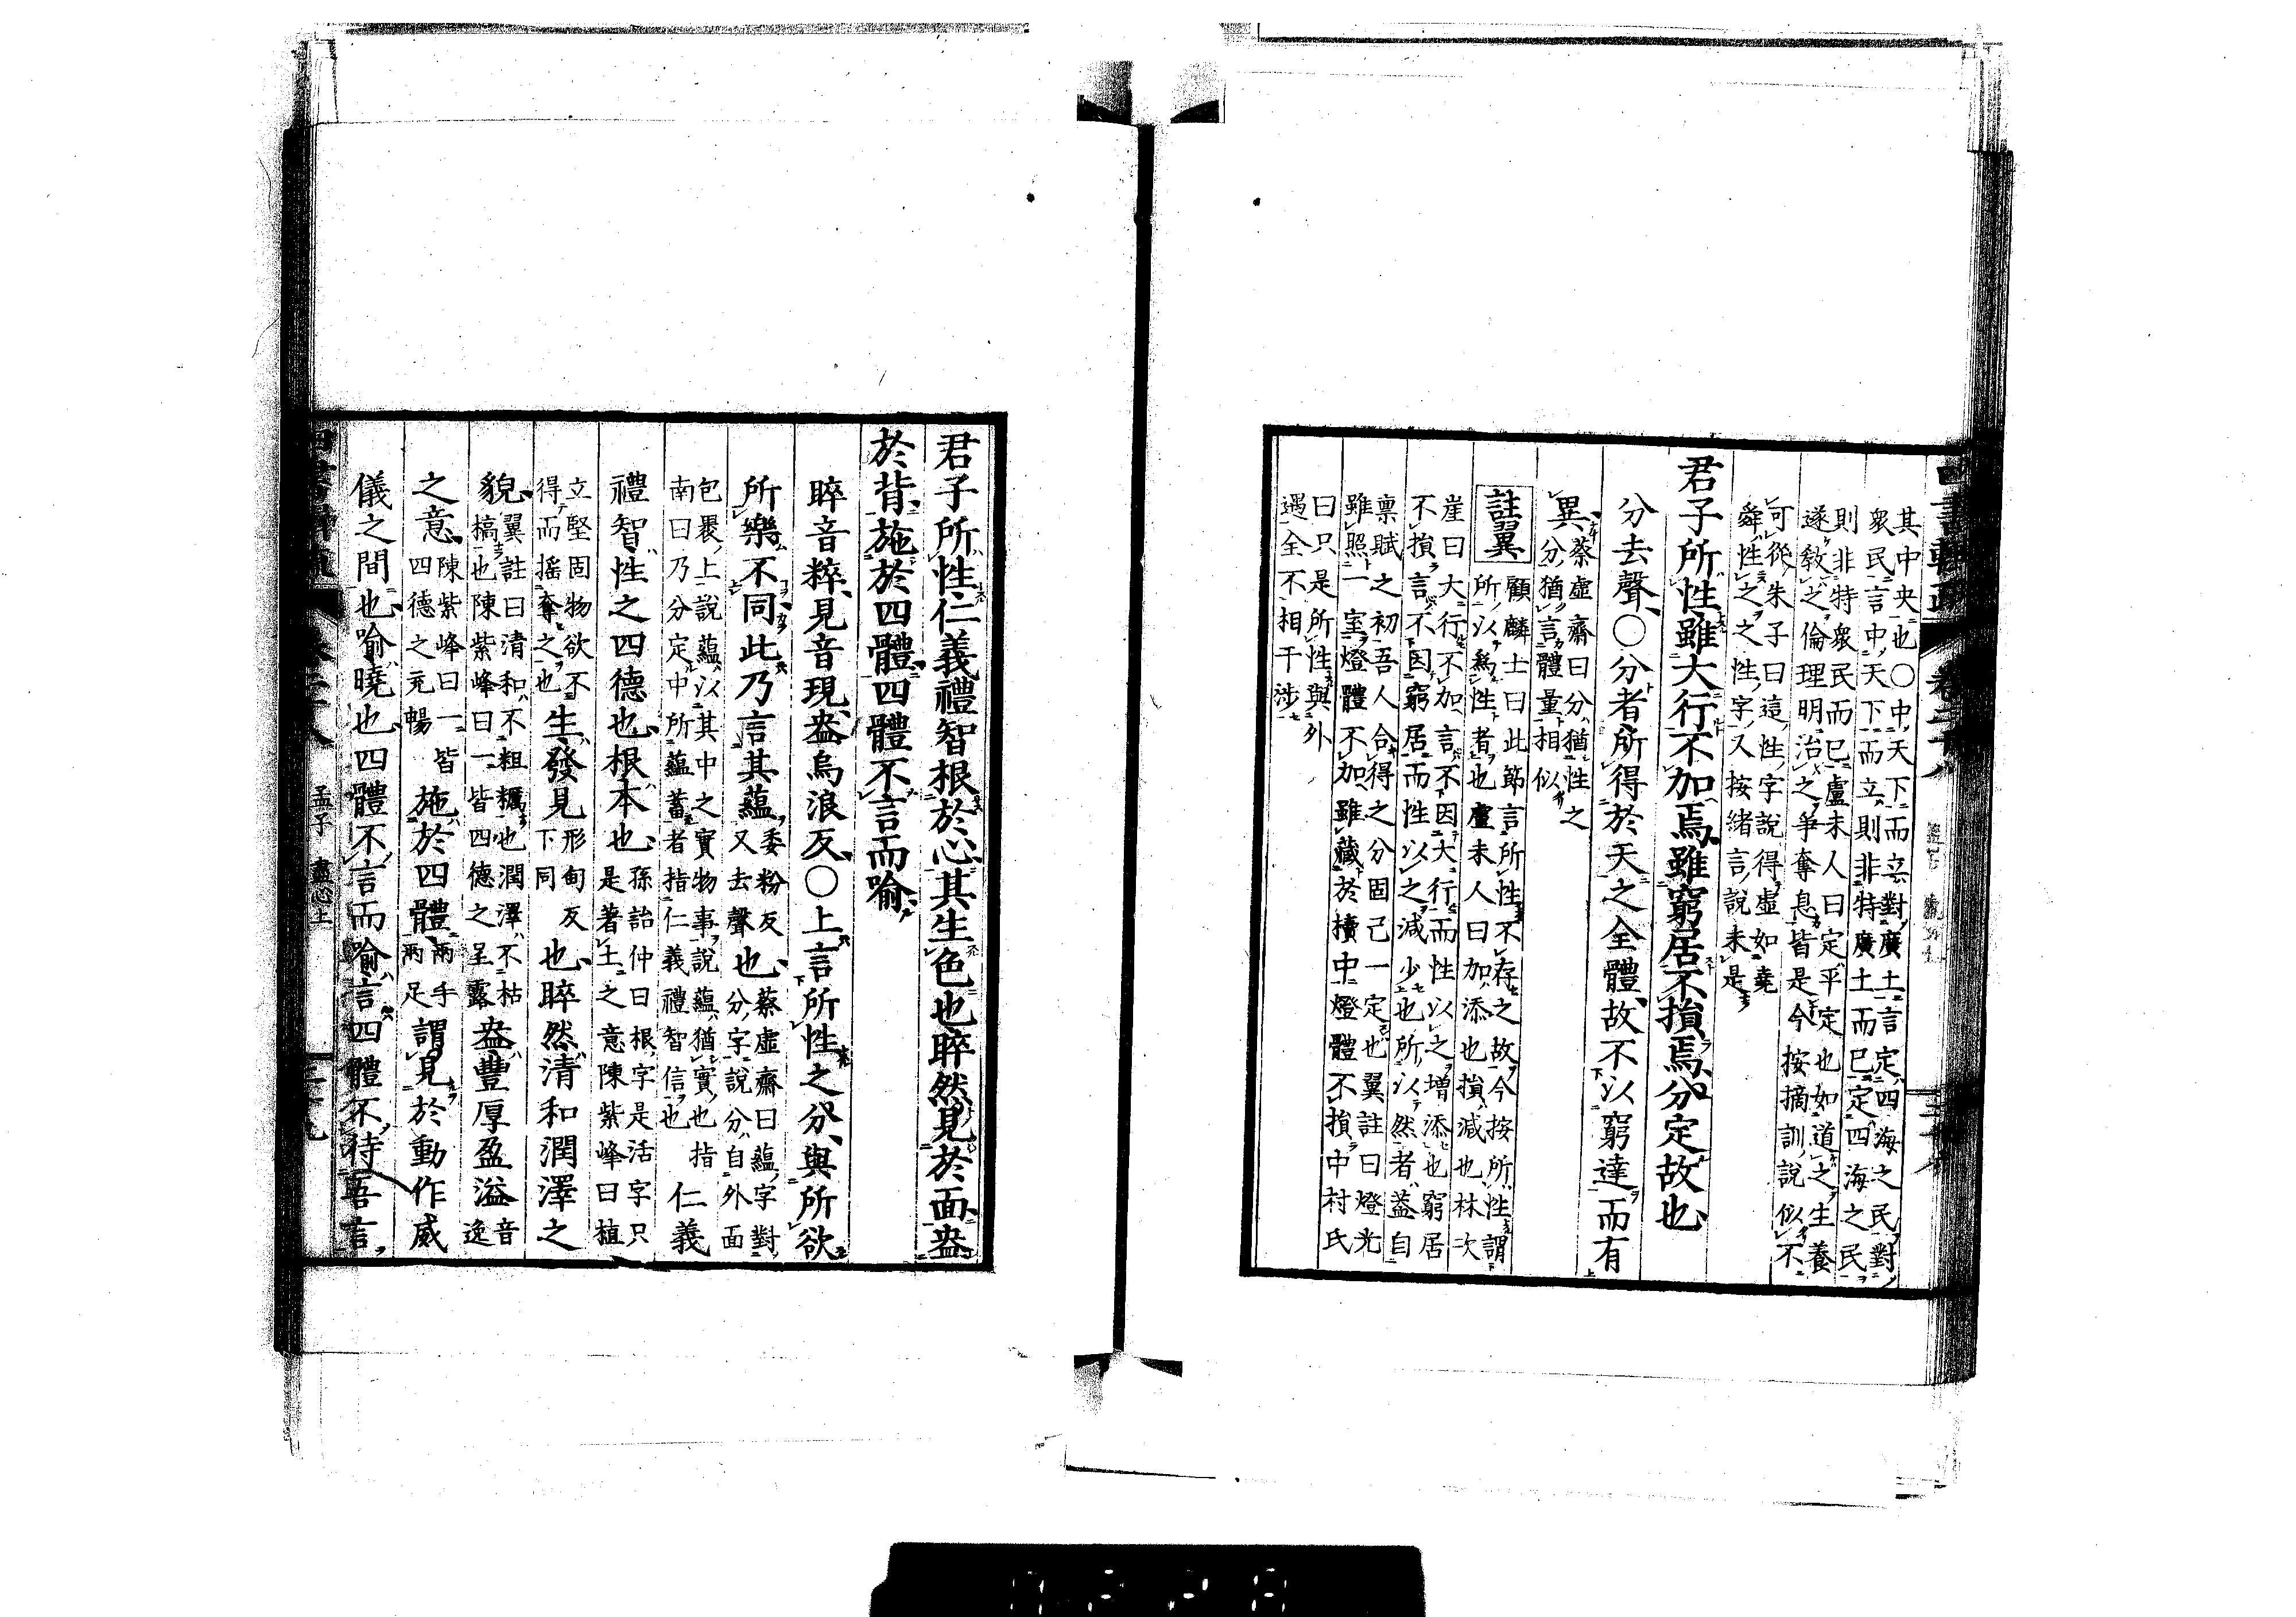 其中央也〇中天下而立對廣土言定四海之民對
衆民言中天下而立則非特廣土而已定四海之民
則非特衆民而已盧未人曰定平定也如道之生養
遂敎之倫理明治之爭奪息皆是今按摘訓說似不
可從朱子曰這性字說得虛如堯
舜性之之性字又按緒言說未是
君子所性雖大行不加焉雖窮居不損焉分定故也
分去聲〇分者所得於天之全體故不以窮達而有
異蔡虛齋曰分猶性之
分猶言體量相似
註翼
顧麟士曰此節言所性不存之故今按所性謂
所以爲性者也盧未人曰加添也損減也林次
崖曰大行不加言不因大行而性以之增添也窮居
不損言不因窮居而性以之減少也所以然者蓋自
稟賦之初吾人合得之分固已一定也翼註曰燈光
雖照一室燈體不加雖藏於櫝中燈體不損中村氏
曰只是所性與外
遇全不相干涉
君子所性仁義禮智根於心其生色也睟然見於面盎
於背施於四體四體不言而喻
睟音粹見音現盎烏浪反〇上言所性之分與所欲
所樂不同此乃言其蘊委粉反
又去聲也蔡虛齋曰蘊字對
分字說分自外面
包裹上說蘊以其中之實物事說蘊猶實也指
南曰乃分定中所蘊蓄者指仁義禮智信也仁義
禮智性之四德也根本也孫詒仲曰根字是活字只
是著土之意陳紫峰曰植
立堅固物欲不
得而搖奪之也生發見形甸反
下同也睟然清和潤澤之
貌翼註曰清和不粗糲也潤澤不枯
槁也陳紫峰曰一皆四德之呈露盎豐厚盈溢音
逸
之意陳紫峰曰一皆
四德之充暢施於四體兩手
兩足謂見於動作威
儀之間也喻曉也四體不言而喻言四體不待吾言
孟子 盡心上